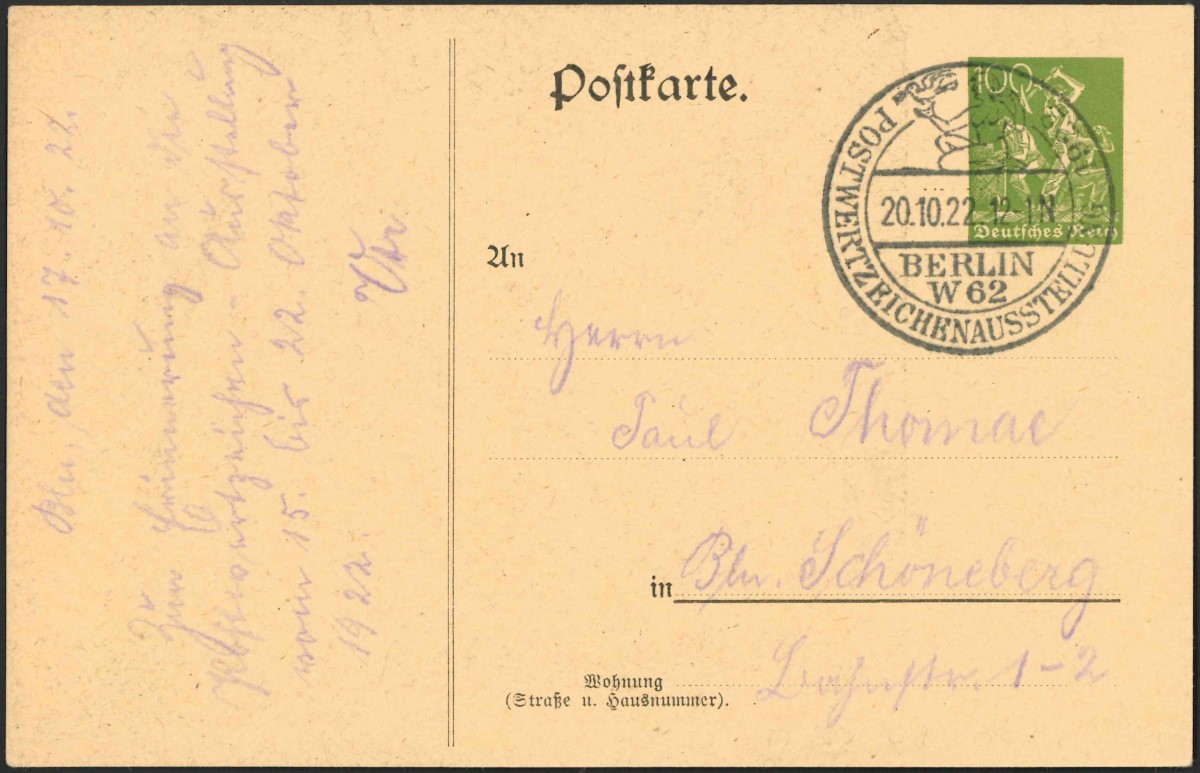 Bln, den 17.10.22.
Zur Erinnerung an die
Postwertzeichen-Ausstellung
vom 15. bis 22. Oktober
1922.
Postkarte.
100
Deutsches Reich
POSTWERTZEICHENAUSSTELLUNG
20.10.22. 12-1N
BERLIN
W62
An
Herrn
Paul Thomae
in Bln. Schöneberg
Wohnung
(Straße u. Hausnummer).
Bahnstr. 1-2